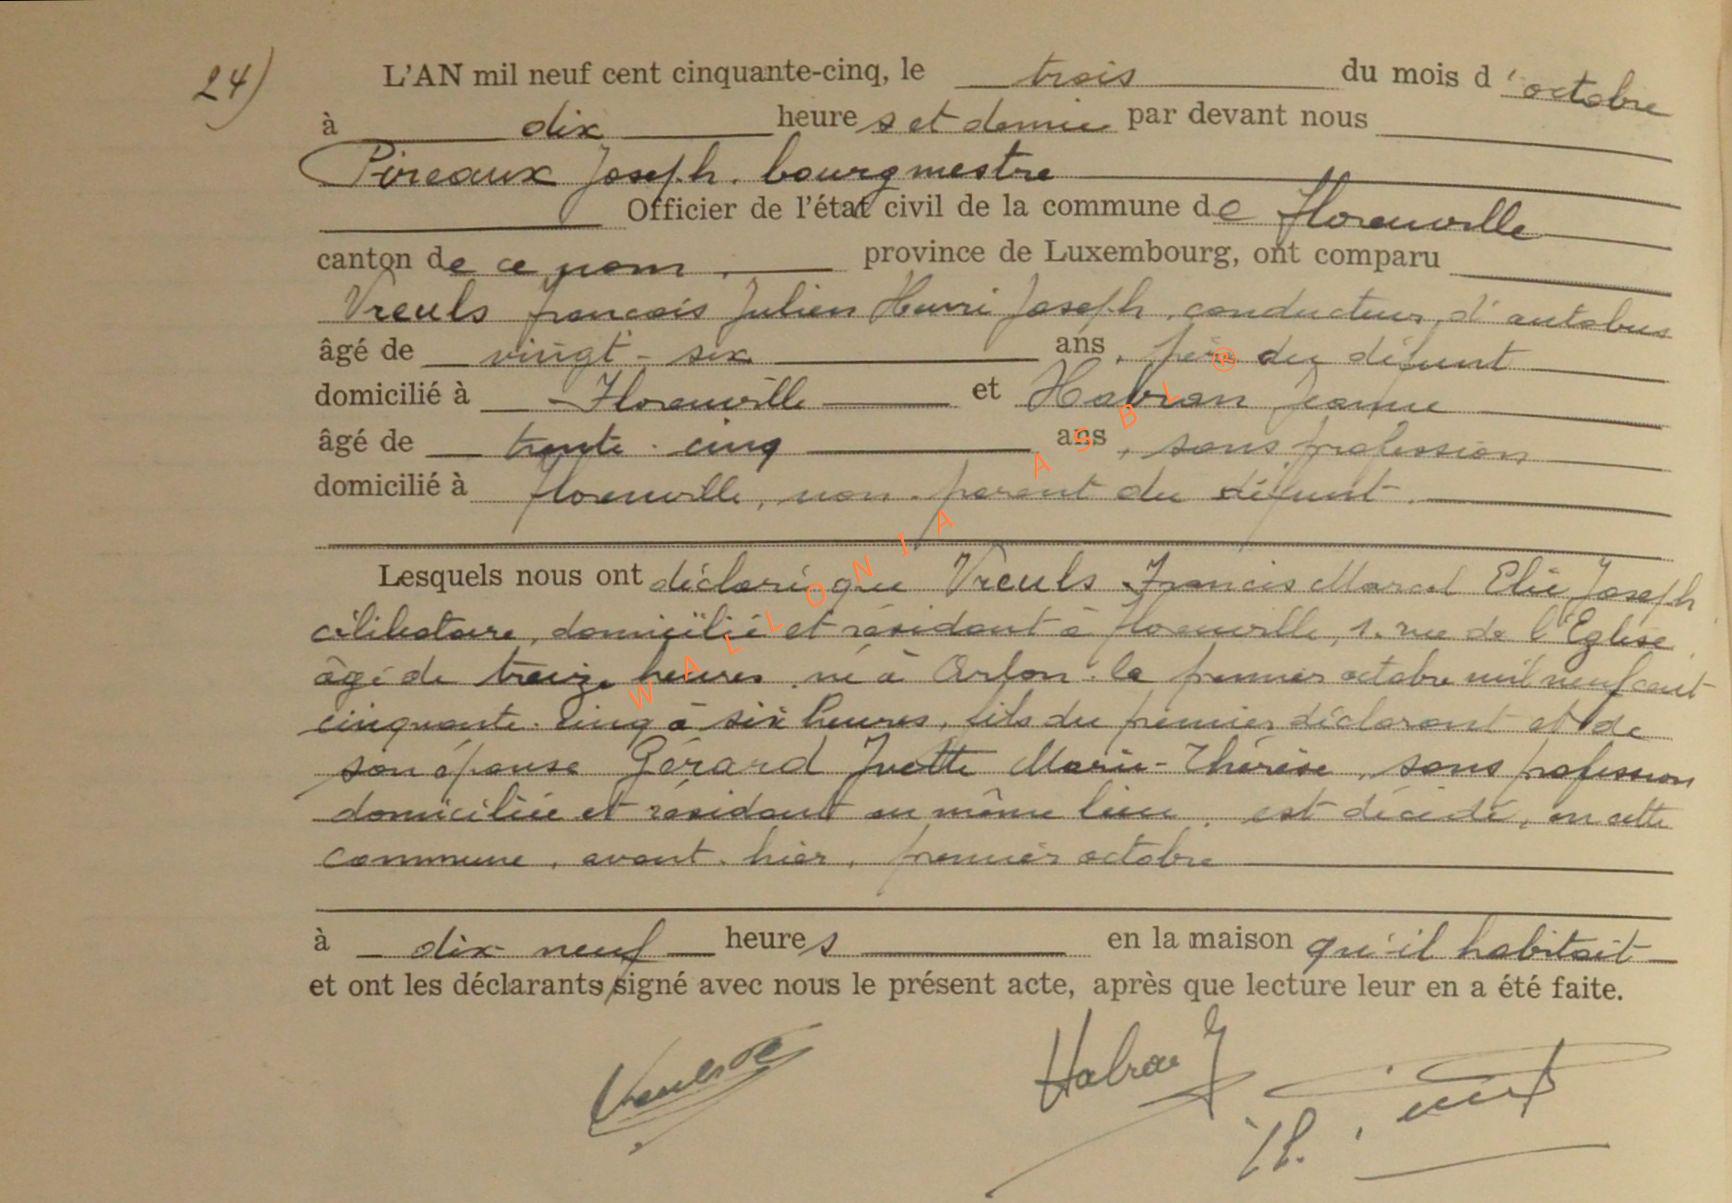 24) L'AN mil neuf cent cinquante-cinq, le trois du mois d'octobre
à dix heures et demie par devant nous
Pireaux Joseph, bourgmestre
Officier de l'état civil de la commune de Florenville
canton de ce nom, province de Luxembourg, ont comparu
Vreuls François Julien Henri Joseph, conducteur d'autobus
âgé de vingt-six ans, père du défunt
domicilié à Florenville et Habran Jeanne
âgé de trente-cinq ans, sans profession
domicilié à Florenville, non parent du défunt.
Lesquels nous ont déclaré que Vreuls Francis Marcel Elie Joseph
célibataire, domicilié et résidant à Florenville, 1, rue de l'Eglise
âgé de treize heures, né à Arlon le premier octobre mil neuf cent
cinquante-cinq à six heures, fils du premier déclarant et de
son épouse Gérard Yvette Marie-Thérèse, sans profession
domiciliée et résidant au même lieu, est décédé, en cette
commune, avant-hier, premier octobre
à dix-neuf heures en la maison qu'il habitait
et ont les déclarants signé avec nous le présent acte, après que lecture leur en a été faite.
Habran J
WALLONIA ASBL ®